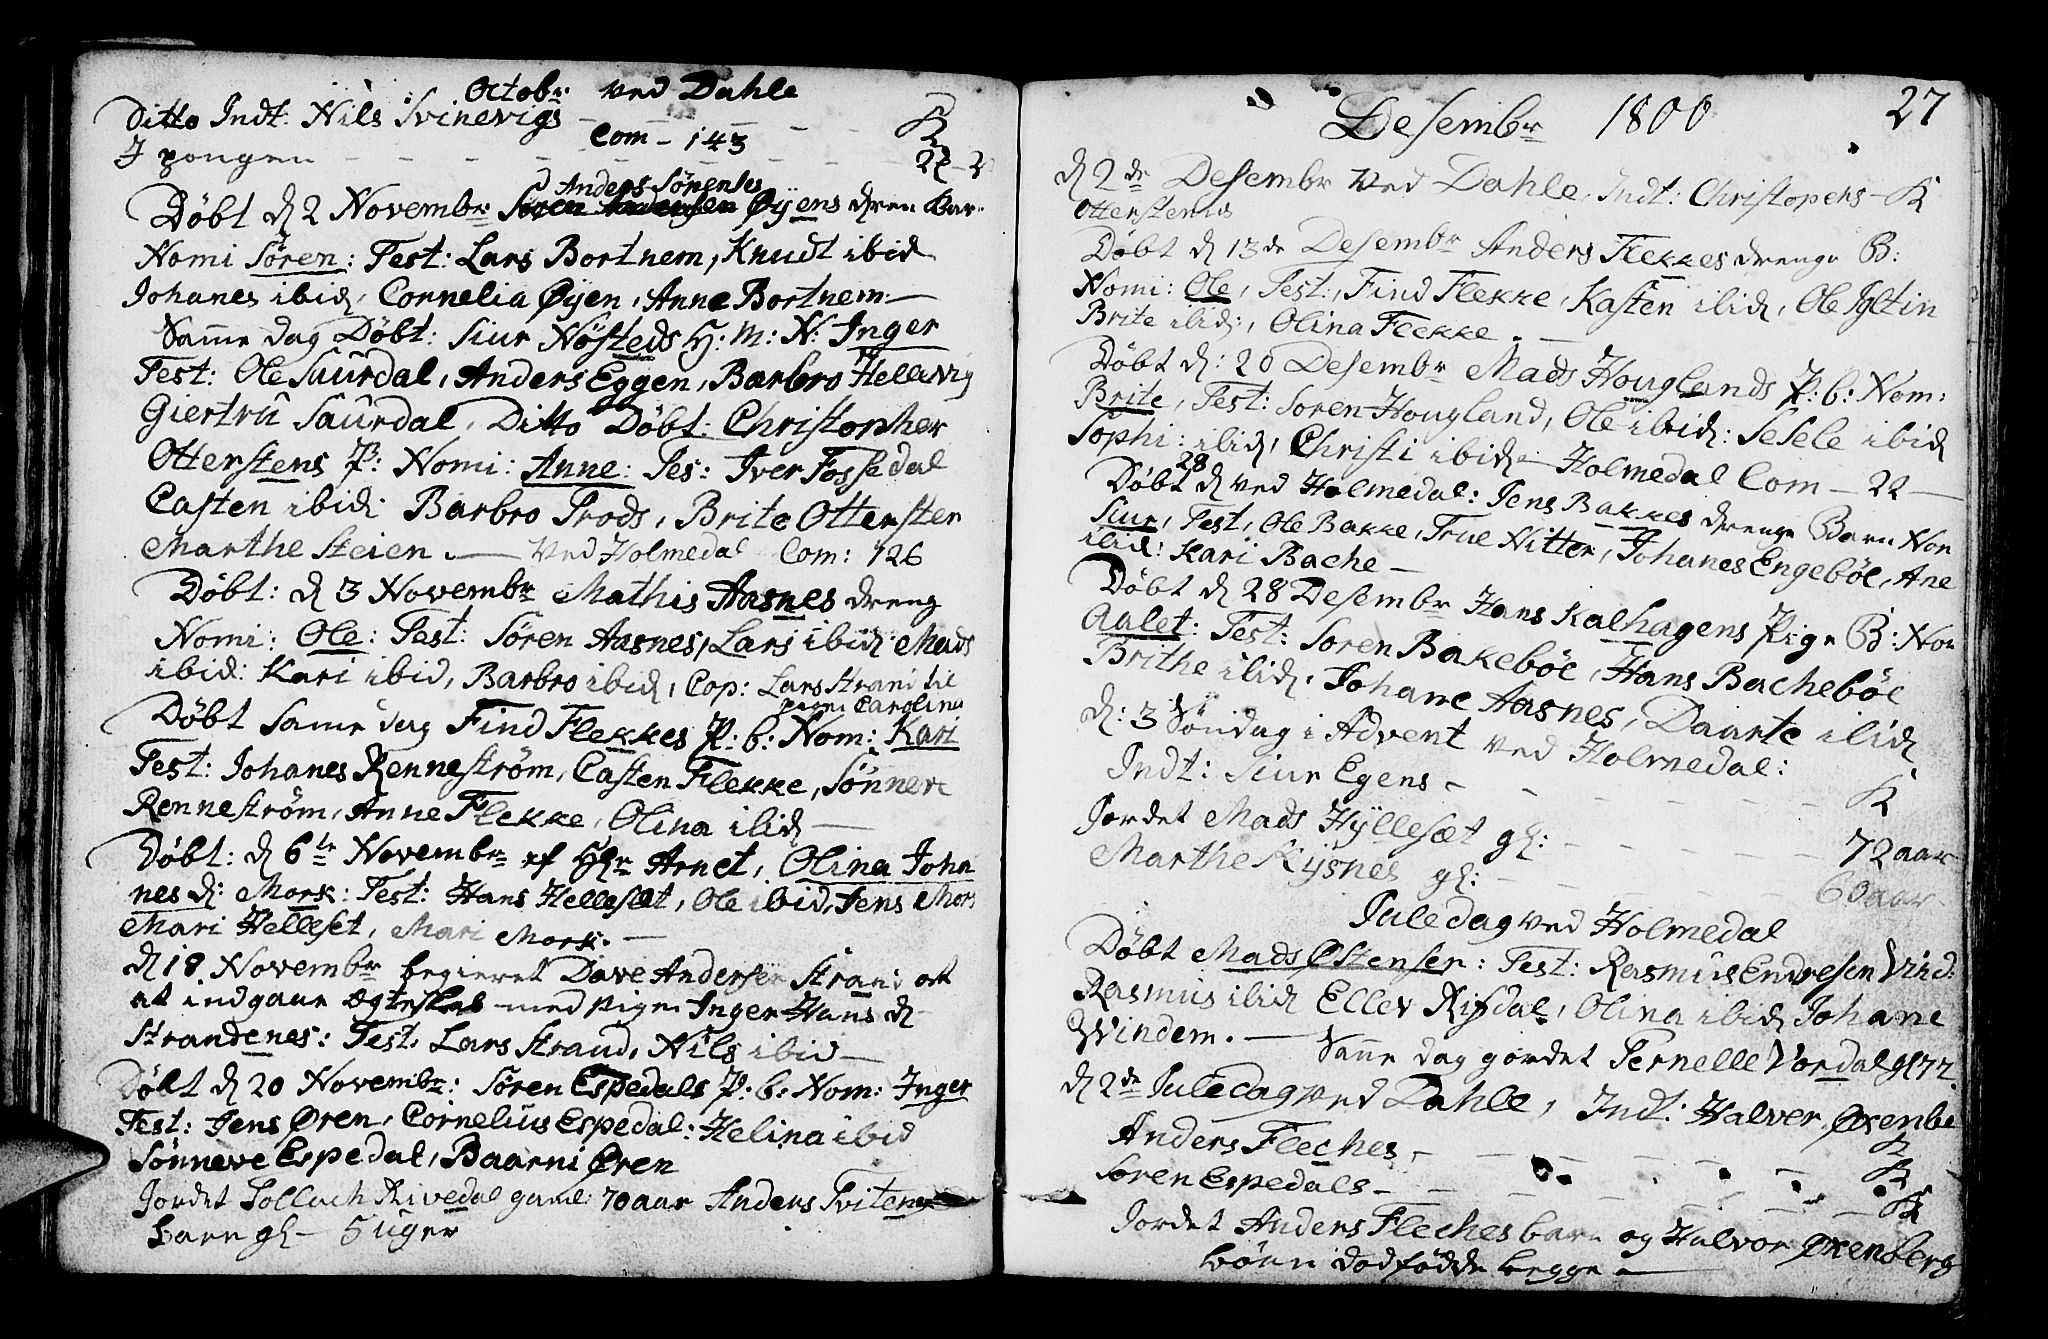 Octobr ved Dahle
Ditto Indt. Nils Svinevigs - - - - K
Com - 143
I pongen - - - - - - - - 22-2
Anders Sørenses
Døbt d 2 Novembr Søren Andersen Øyens dren Bar-
Nomi Søren: Test: Lars Bortnem, Knudt ibid
Johanes ibid, Cornelia Øyen, Anne Bortnem —
Same dag Døbt: Siur Nøsteds H: M: N: Inger
Test: Ole Saurdal, Anders Eggen, Barbro Hellevig
Giertru Saurdal, Ditto Døbt: Christopher
Otterstens P: Nomi: Anne: Tes: Iver Fossedal
Casten ibid: Barbro Trods, Brite Ottersten
Marthe Steien. — Ved Holmedal Com: 126
Døbt: d 3 Novembr Mathis Aasnes dreng
Nomi: Ole: Test: Søren Aasnes, Lars ibid Mads
ibid: Kari ibid, Barbro ibid, Cop: Lars Strand til
pigen Carolina
Døbt Same dag Find Flekkes P: b: Nom: Kari
Test: Johanes Rennestrøm, Casten Flekke, Sønneve
Rennestrøm, Anne Flekke, Olina ibid —
Døbt: d 6te Novembr af Hr Arnet, Olina Joha
nes d: Mork: Test: Hans Helleset, Ole ibid, Jens Mork
Mari Helleset, Mari Mork. —
d 18 Novembr begieret Dave Andersen Strand at
at indgaae Ægteskab med Pigen Inger Hans d
Strandenes: Test: Lars Strand, Nils ibid —
Døbt d 20 Novembr: Søren Espedals P: b: Nom: Inger
Test: Jens Øren, Cornelius Espedal: Helina ibid
Sønneve Espedal, Baarni Øren
Jordet Sollach Rivedal gaml: 70 aar Anders Tvitens
barn gl - 5 uger
Desembr 1800 27
d 2de Desembr Ved Dahle, Indt: Christopers - K
Otterstens
Døbt d 13de Desembr Anders Flekkes drenge B:
Nomi: Ole, Test:, Find Flekke, Kasten ibid, Ole Igltin
Brite ibid:, Olina Flekke. —
Døbt d: 20 Desembr Mads Houglands P: b: Nom:
Brite, Test: Soren Hougland, Ole ibid: Sesele ibid
Sophi: ibid, Christi ibid - Holmedal Com - 22 -
28
Døbt d ved Holmedal: Jens Bakkes drenge Barn Nom
Siur, Test, Ole Bakke, True Nitter, Johanes Engebøe, Ane
ibid: Kari Bache —
Døbt d 28 Desembr Hans Kalhagens Pige B: Nom
Aalet: Test: Soren Bakebøe, Hans Bachebøe
Brithe ibid, Johane Aasnes, Daarte ibid
d: 3 Søndag i Advent ved Holmedal:
Indt: Siur Egens - - - - - - - K
Jordet Mads Hyllesæt gl: - - - - - 72 aar
Marthe Kysnes gl: - - - - - - 60 aar.
Juledag ved Holmedal
Døbt Mads Østensen: Test: Rasmus Endresen Vind:
Rasmus ibid Ellev Risdal, Olina ibid Johane
Windem. — Same dag gordet Pernelle Vordal gl 77.
d 2de Juledag ved Dahle, Indt: Halver Øxenbe
K
Anders Fleches, - - - - - - K
Soren Espedals - - - - - - K
Jordet Anders Fleches barn og Halvor Øxenberg
bønn dødfødde begge —